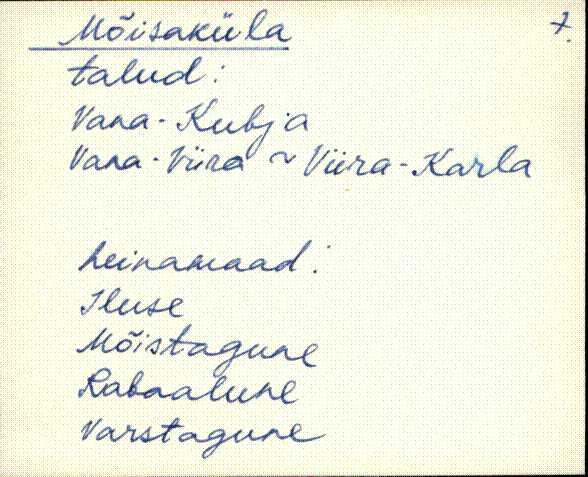 Mõisaküla 7.
talud:
Vana-Kubja
Vana-Viira ~ Viira-Karla
heinamaad:
Iluse
Mõistagune
Rabaalune
Varstagune